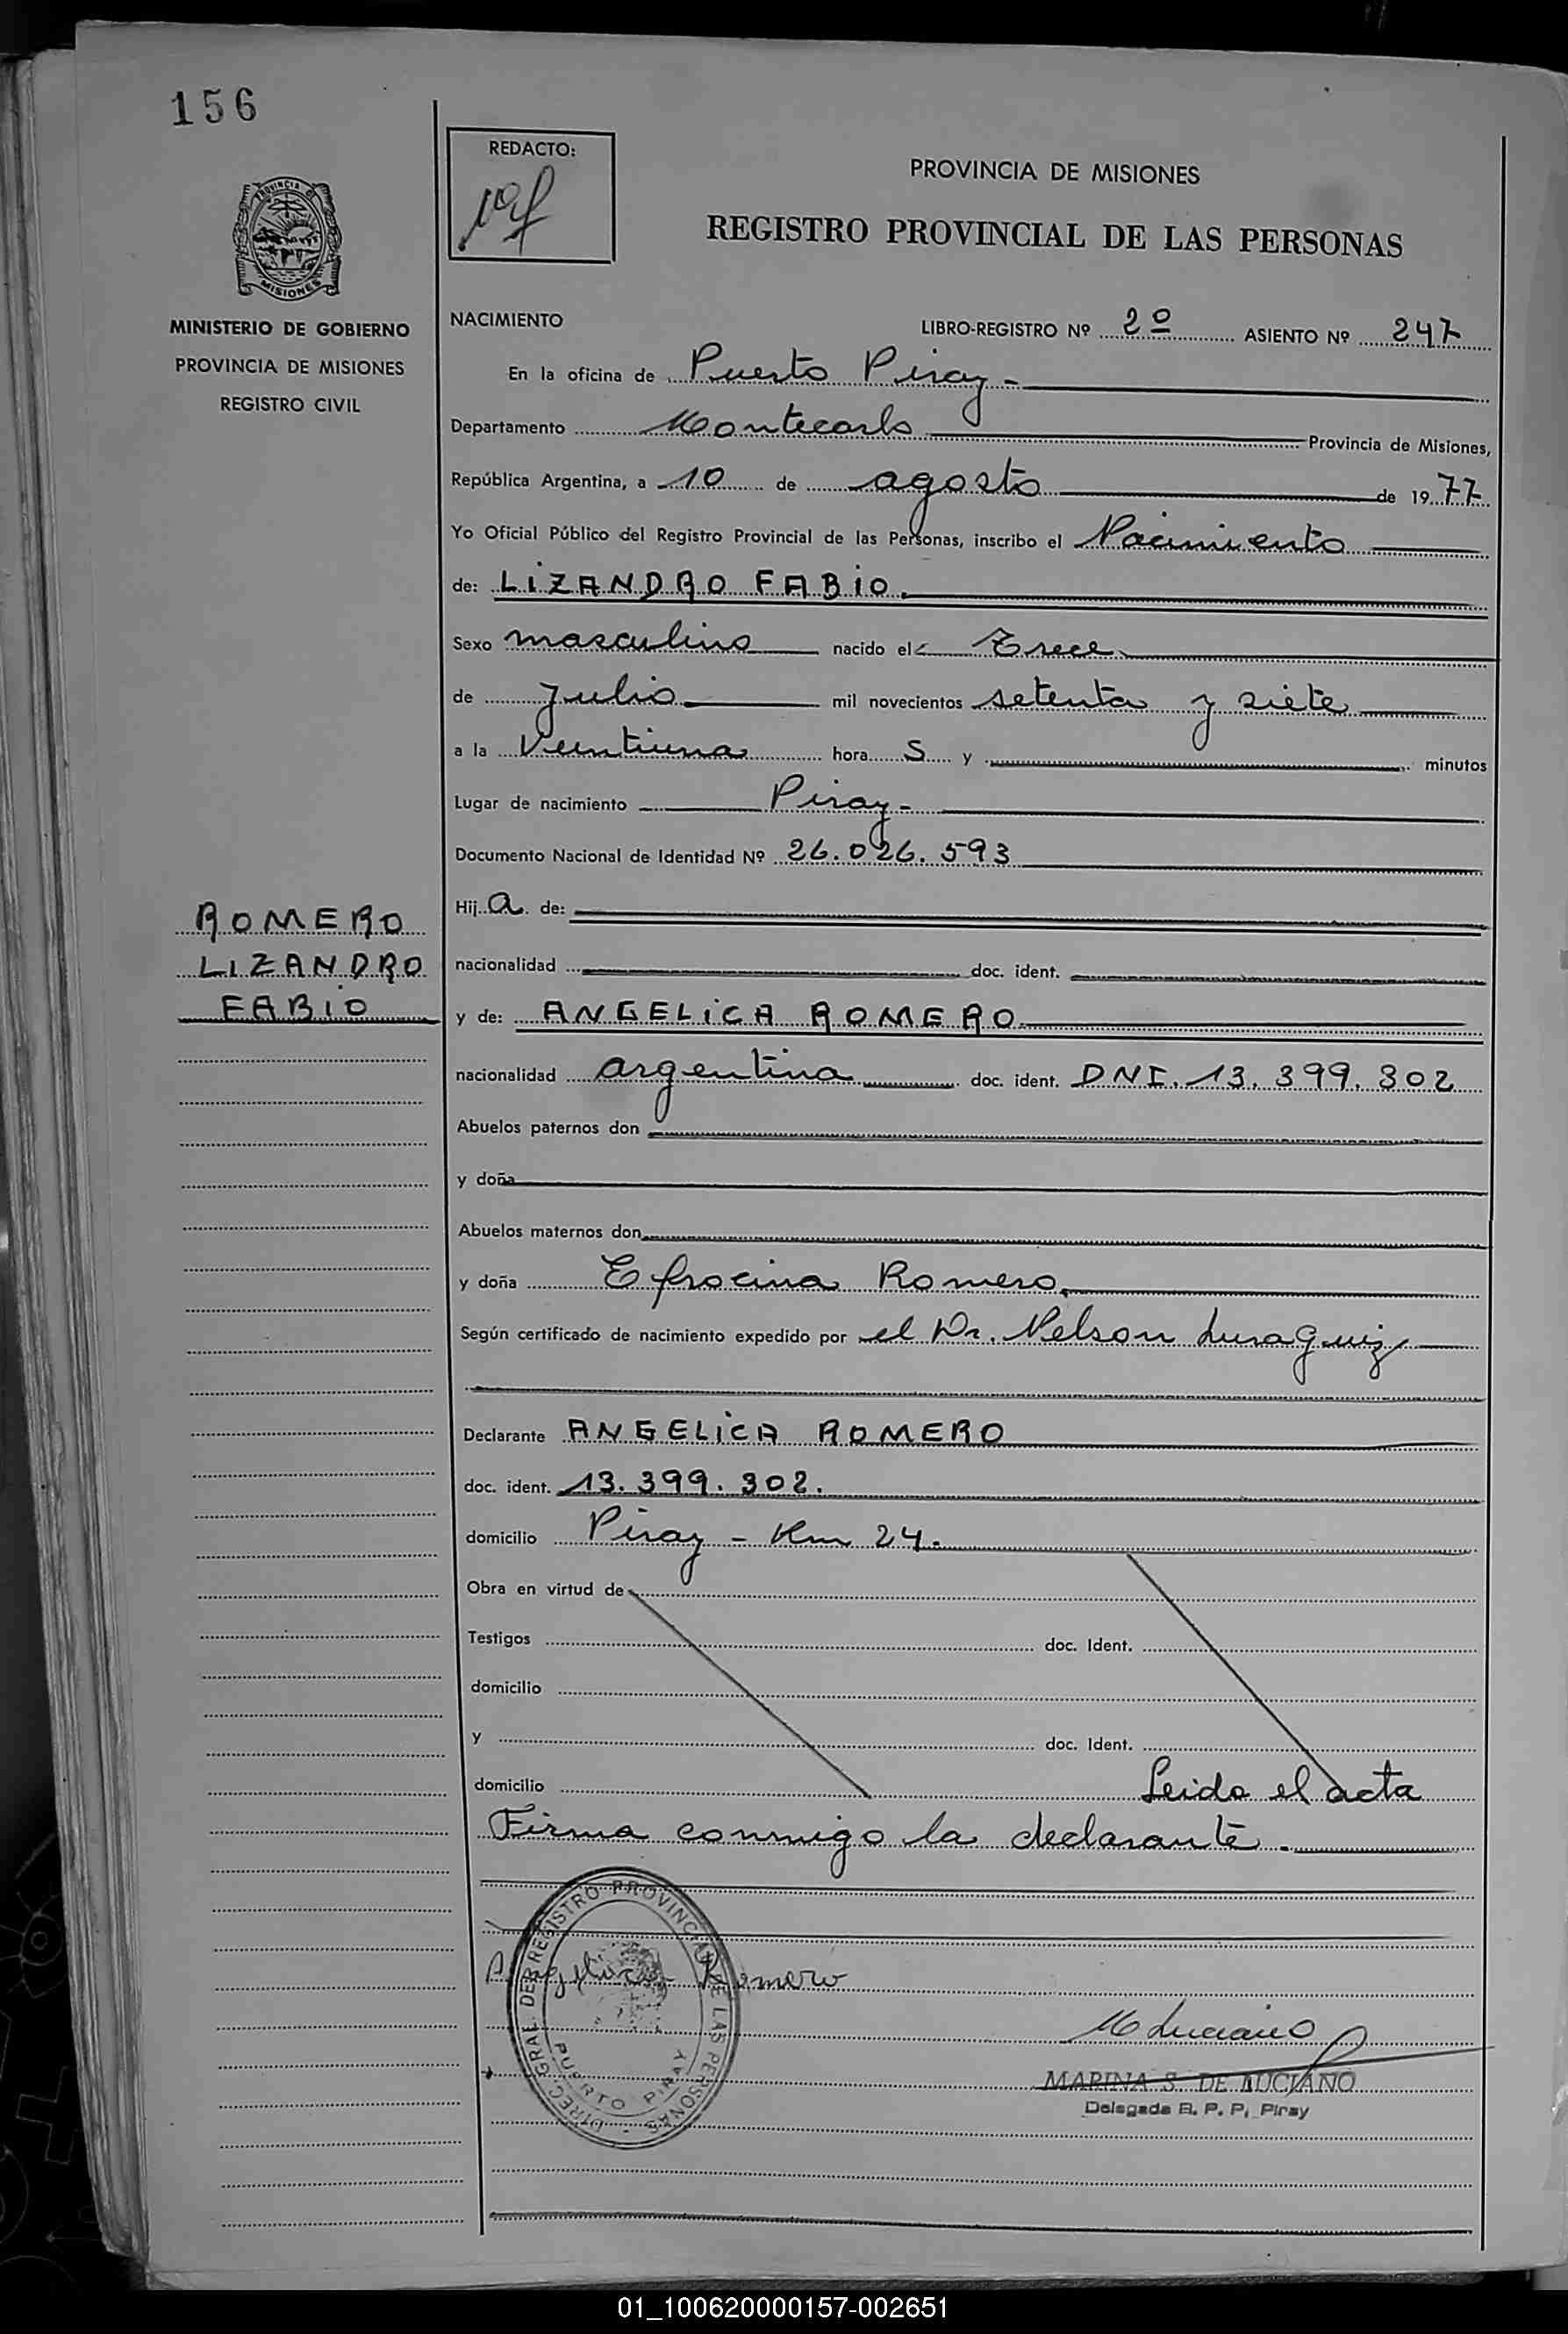 156
REDACTO:
PROVINCIA DE MISIONES
REGISTRO PROVINCIAL DE LAS PERSONAS
PROVINCIA DE
MISIONES
MINISTERIO DE GOBIERNO
PROVINCIA DE MISIONES
REGISTRO CIVIL
NACIMIENTO LIBRO-REGISTRO Nº 2º ASIENTO Nº 247
En la oficina de Puerto Piray -
Departamento Montecarlo Provincia de Misiones,
República Argentina, a 10 de agosto de 1977
Yo Oficial Público del Registro Provincial de las Personas, inscribo el Nacimiento
de: LIZANDRO FABIO.
Sexo masculino nacido el Trece
de Julio mil novecientos setenta y siete
a la Veintiuna hora s y minutos
Lugar de nacimiento Piray -
Documento Nacional de Identidad Nº 26.026.593
Hij a de:
ROMERO
LIZANDRO
FABIO
nacionalidad doc. ident.
y de: ANGELICA ROMERO
nacionalidad argentina doc. ident. DNI. 13.399.302
Abuelos paternos don
y doña
Abuelos maternos don
y doña Efrocina Romero
Según certificado de nacimiento expedido por el Dr. Nelson
Declarante ANGELICA ROMERO
doc. ident. 13.399.302.
domicilio Piray - Km 24.
Obra en virtud de
Testigos doc. Ident.
domicilio
y doc. Ident.
domicilio Leida el acta
Firma conmigo la declarante.
Angelica Romero
DIREC. GRAL. DEL REGISTRO PROVINCIAL DE LAS PERSONAS
PUERTO PIRAY
M Luciano
MARINA S. DE LUCIANO
Delegada R. P. P. Piray
01_100620000157-002651